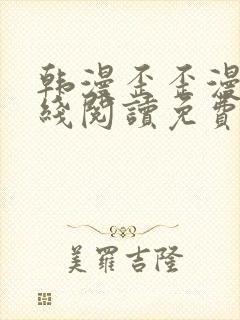 韩漫歪歪漫
綫閱讀免費
美羅吉隆